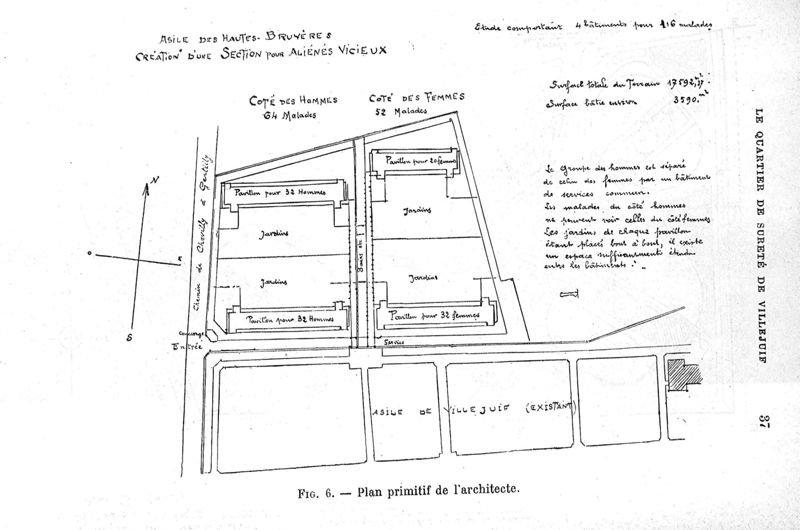 ASILE DES HAUTES-BRUYÈRES
CRÉATION D'UNE SECTION POUR ALIÉNÉS VICIEUX
Etude comportant 4 bâtiments pour 116 malades
Surface totale du Terrain 17592,37
Surface bâtie environ 3590.m²
COTÉ DES HOMMES
64 Malades
COTÉ DES FEMMES
52 Malades
Le groupe des hommes est séparé
de celui des femmes par un bâtiment
de services commun.
Les malades du côté hommes
ne peuvent voir celles du côté femmes
Les jardins de chaque pavillon
étant placé bout à bout, il existe
un espace suffisamment étendu
entre les bâtiments.
Pavillon pour 32 Hommes
Pavillon pour 20 femmes
Jardins
Jardins
Jardins
Jardins
Pavillon pour 32 Hommes
Pavillon pour 32 femmes
Chemin de Chevilly à Gentilly
N
O
E
S
Concierge
Entrée
Service
ASILE DE VILLEJUIF (EXISTANT)
LE QUARTIER DE SURETÉ DE VILLEJUIF
37
FIG. 6. — Plan primitif de l'architecte.